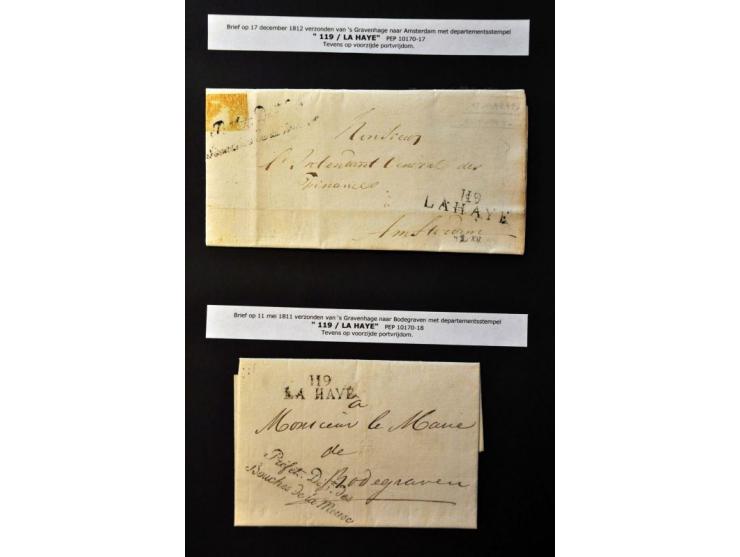 Brief op 17 december 1812 verzonden van 's Gravenhage naar Amsterdam met departementsstempel
" 119 / LA HAYE" PEP 10170-17
Tevens op voorzijde portvrijdom.
Monsieur
L'Intendant General des
Finances
119
LAHAYE
Amsterdam
Brief op 11 mei 1811 verzonden van 's Gravenhage naar Bodegraven met departementsstempel
" 119 / LA HAYE" PEP 10170-18
Tevens op voorzijde portvrijdom.
119
LA HAYE
a
Monsieur le Maire
de
Bodegraven
Préfet. Dép. des
Bouches de la Meuse